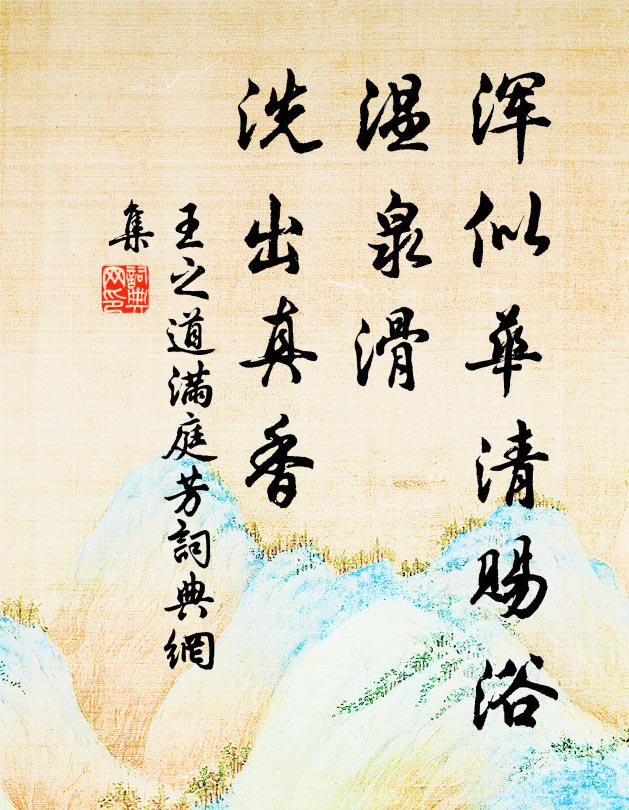 浑似華清赐浴
温泉滑
洗出真香
王之道满庭芳詞典網
集
詞典
网印